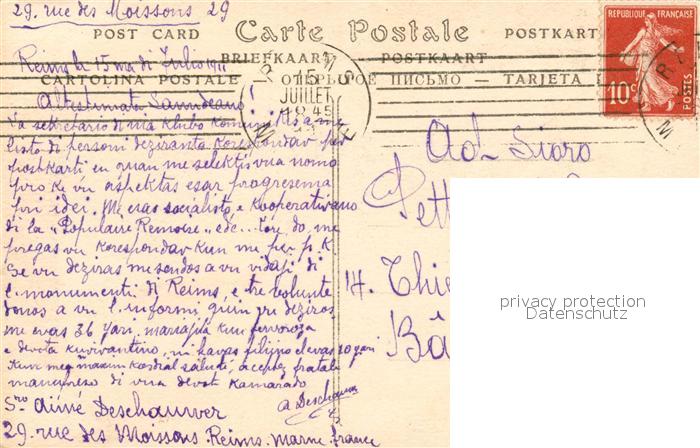 29, rue des Moissons 29
Carte Postale
POST CARD POSTKART
BRIEFKAART POSTKAART
CARTOLINA POSTALE ОТКРЫТОЕ ПИСЬМО — TARJETA
RÉPUBLIQUE FRANÇAISE
10c
POSTES
15
JUILLET
45
Reims le 15 ma di Julio
Altestimata Samideano!
La sekretario di nia klubo komunikis a me
listo di personi deziranta korespondar per
postkarti en quan me selektis vua nomo
pro ke vu aspektas esar progresema
pri idei. Me esas socialisto e kooperativano
di la "Populaire Rémoise" edc... Tore do, me
pregas vu korespondar kun me per p. K
Se vu deziras me sendos a vu vidaji di
l. monumenti di Reims, e tre volunte
donos a vu l. informi quin vu deziros
me evas 36 yari, mariajita kun fervoroza
e devota kunvivantino, ni havas filiino elevas 10 yari
Kun mea maxim kordial saluti, aceptez fratala
manupreso di vua devot kamarado
Sro Aimé Deschauwer
29. rue des Moissons. Reims. Marne. France
Ad Sioro
Pett
14. Thie
Bâ
privacy protection
Datenschutz